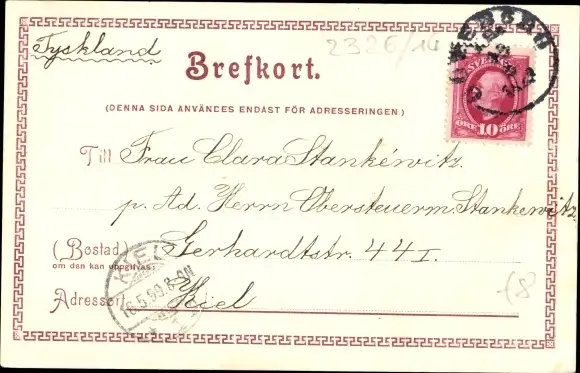 Tyskland
2326/14
Brefkort.
SVERIGE
ÖRE 10 ÖRE
(DENNA SIDA ANVÄNDES ENDAST FÖR ADRESSERINGEN.)
Till Frau Clara Stankéwitz.
p. Ad. Herrn Obersteuerm. Stankewitz
(Bostad) Gerhardtstr. 44 I.
om den kan uppgifvas)
Adressort Kiel
KIEL
16.5.99.8-9N
18